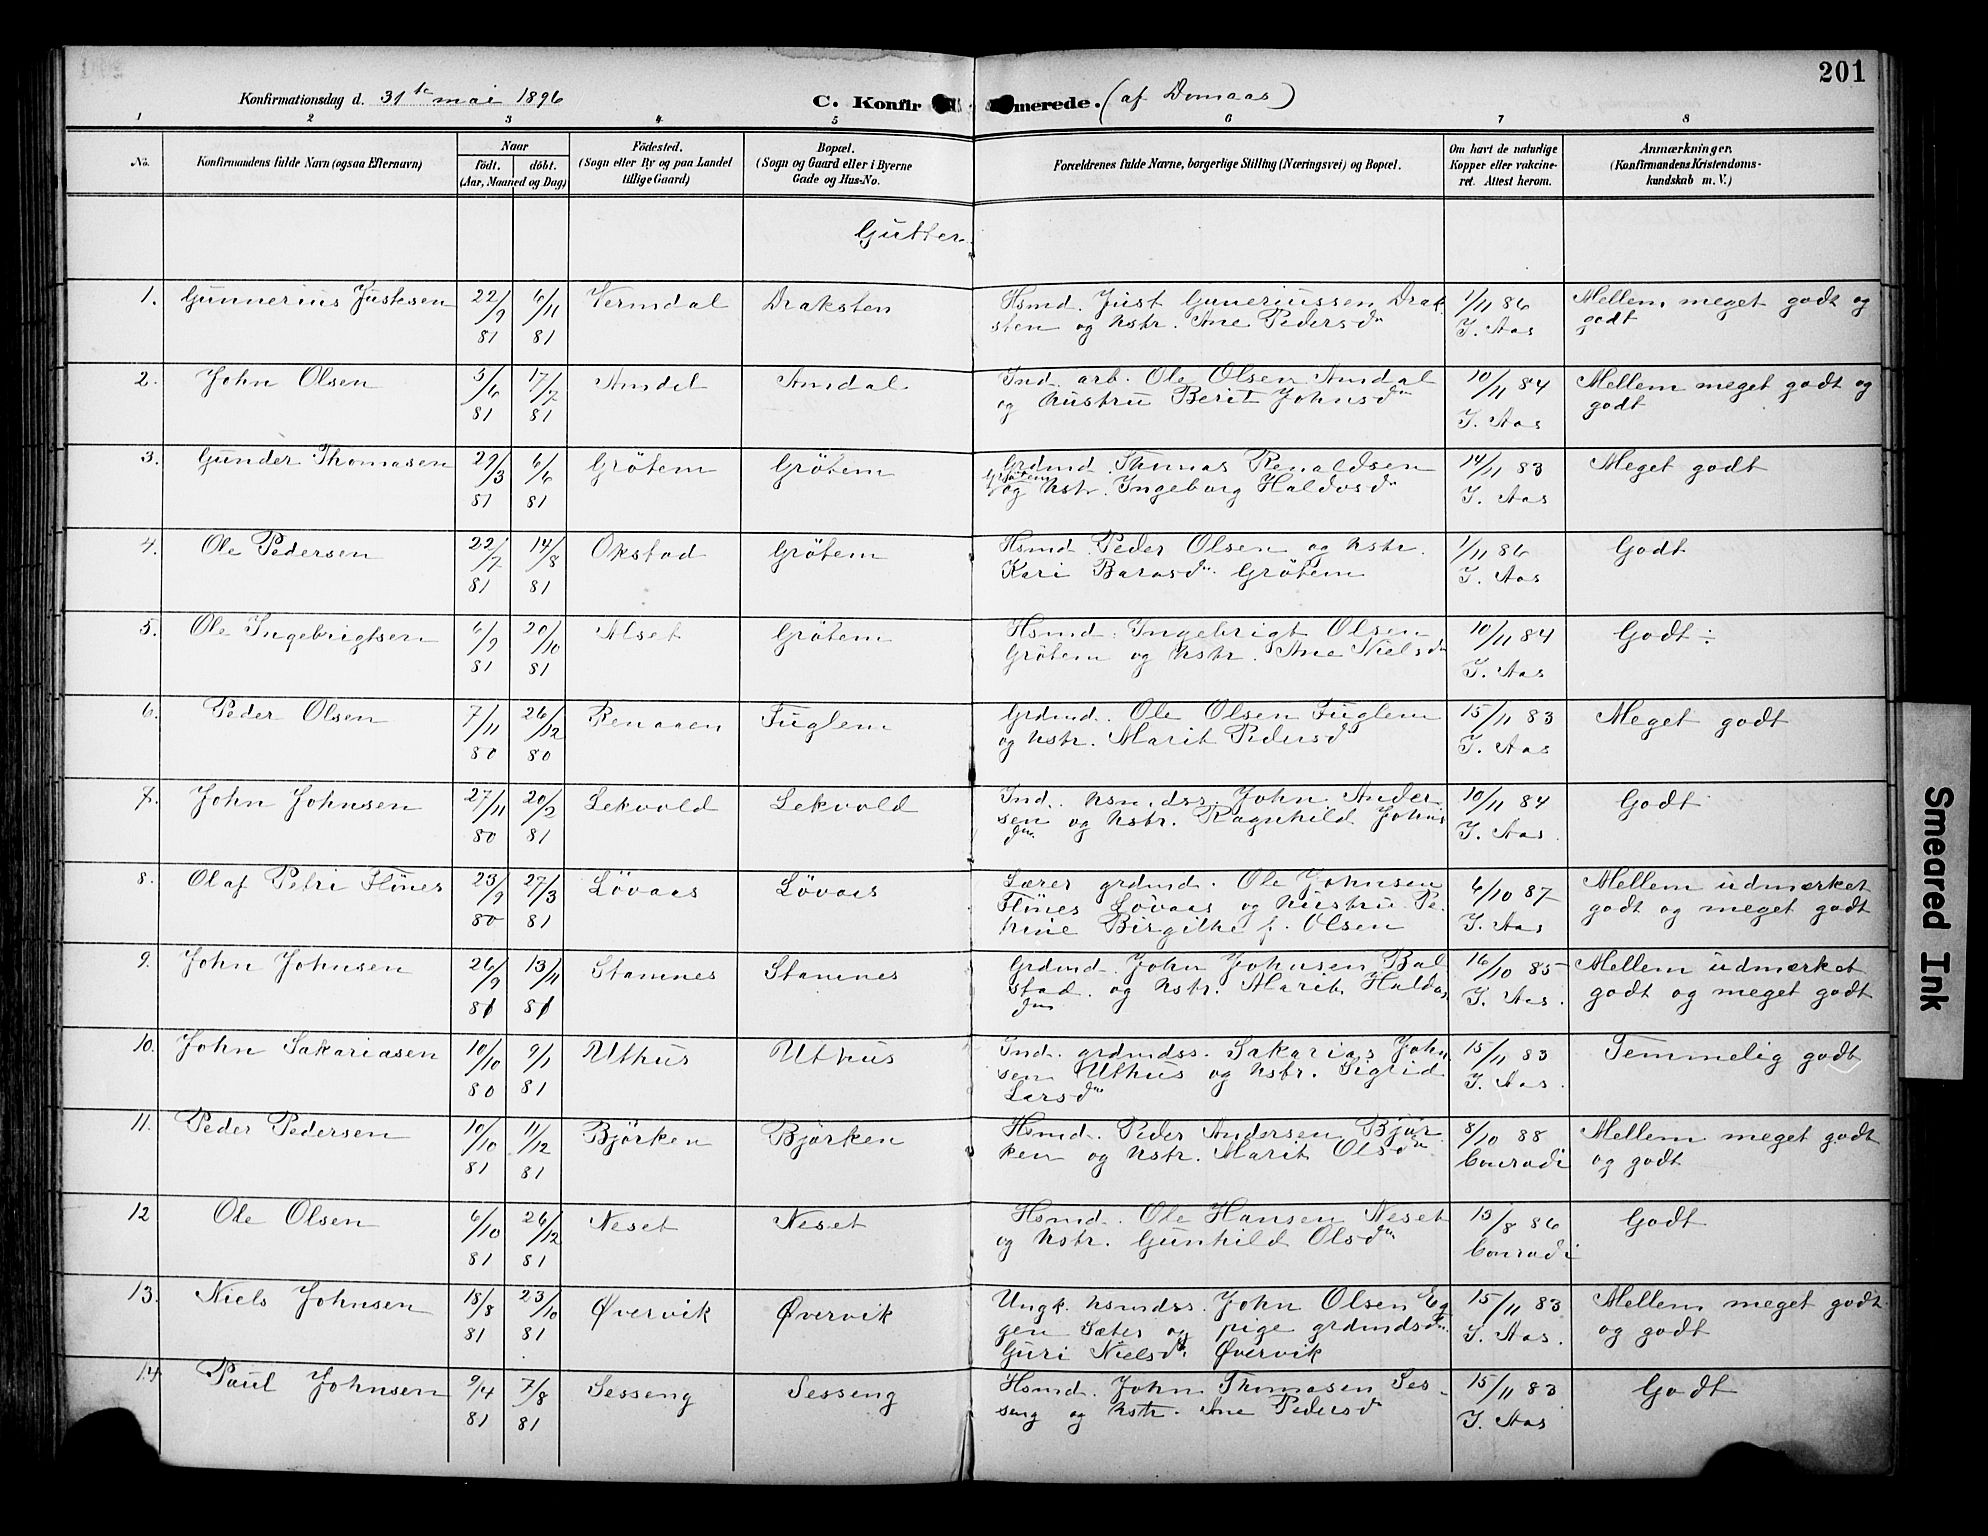 201
Konfirmationsdag d. 31te mai 1896 C. Konfir merede. (af Domaas)
1 2 3 4 5 6 7 8
No. Konfirmandens fulde Navn (ogsaa Efternavn) Naar født. døbt. (Aar, Maaned og Dag) Fødested. (Sogn eller By og paa Landet tillige Gaard) Bopæl. (Sogn og Gaard eller i Byerne Gade og Hus-No. Forældrenes fulde Navne, borgerlige Stilling (Næringsvei) og Bopæl. Om havt de naturlige Kopper eller vakcineret. Attest herom. Anmærkninger. (Konfirmandens Kristendomskundskab m. V.)
Gutter
1. Gunnerius Justesen 22/9 81 6/11 81 Vermdal Draksten Hsmd. Just Guneriussen Drak
sten og hstr. Ane Pedersdn 1/11 86 J. Aas Mellem meget godt og godt
2. John Olsen 3/6 81 17/7 81 Amdal Amdal Ind. arb. Ole Olsen Amdal
og hustru Berit Johnsdn 10/11 84 J. Aas Mellem meget godt og godt
3. Gunder Thomasen 29/3 81 6/6 81 Grötem Grötem Grdmd. Thomas Renaldsen
Grötem og hstr. Ingeborg Haldosdn 14/11 83 J. Aas Meget godt
4. Ole Pedersen 22/7 81 14/8 81 Okstad Grötem Hsmd. Peder Olsen og hstr.
Kari Barasdn. Grötem 1/11 86 J. Aas Godt
5. Ole Ingebrigtsen 6/9 81 20/10 81 Alset Grötem Hsmd. Ingebrigt Olsen
Grötem og hstr. Ane Nielsdn 10/11 84 J. Aas Godt ÷
6. Peder Olsen 7/11 80 26/12 80 Renaaen Fuglem Grdmd. Ole Olsen Fuglem
og hstr. Marit Pedersdn 15/11 83 J. Aas Meget godt
7. John Johnsen 27/11 80 20/2 81 Lekvold Lekvold Ind. hsmdss. John Ander
sen og hstr. Ragnhild Johns
dn 10/11 84 J. Aas. Godt
8. Olaf Petri Flines 23/9 80 27/3 81 Lövaas Lövaas Lærer grdmd. Ole Johnsen
Flines Lövaas og hustru Pe-
Birgithe f. Olsen 6/10 87 J. Aas Mellem udmerket godt og meget godt
9. John Johnsen 26/9 81 13/11 81 Stamnes Stamnes Grdmd. John Johnsen Bal
stad. og hstr. Marit Haldos
dn 16/10 85 J. Aas. Mellem udmerket godt og meget godt
10. John Sakariasen 10/10 80 9/1 81 Uthus Uthus Ind. grdmdss. Sakarias John
sen Uthus og hstr. Sigrid
Larsdn 15/11 83 J. Aas. Temmelig godt
11. Peder Pedersen 10/10 81 11/12 81 Björken Björken Hsmd. Peder Andersen Bjür
ken og hstr. Marit Olsdn 8/10 88 Conradi Mellem meget godt og godt
12 Ole Olsen 6/10 81 26/12 81 Neset Neset Hsmd. Ole Hansen Neset
og hstr. Gunhild Olsdn 13/8 86 Conradi Godt
13. Niels Johnsen 18/8 81 23/10 81 Øvervik Øvervik Ungk. hsmdss. John Olsen Eg
gen Sæter og pige grdmdsdn.
Guri Nielsdn. Øvervik 15/11 83 J. Aas. Mellem meget godt og godt
14 Paul Johnsen 9/4 81 7/8 81 Sesseng Sesseng Hsmd. John Thomasen Ses-
seng og hstr. Ane Pedersdn 15/11 83 J. Aas Godt
Smeared Ink